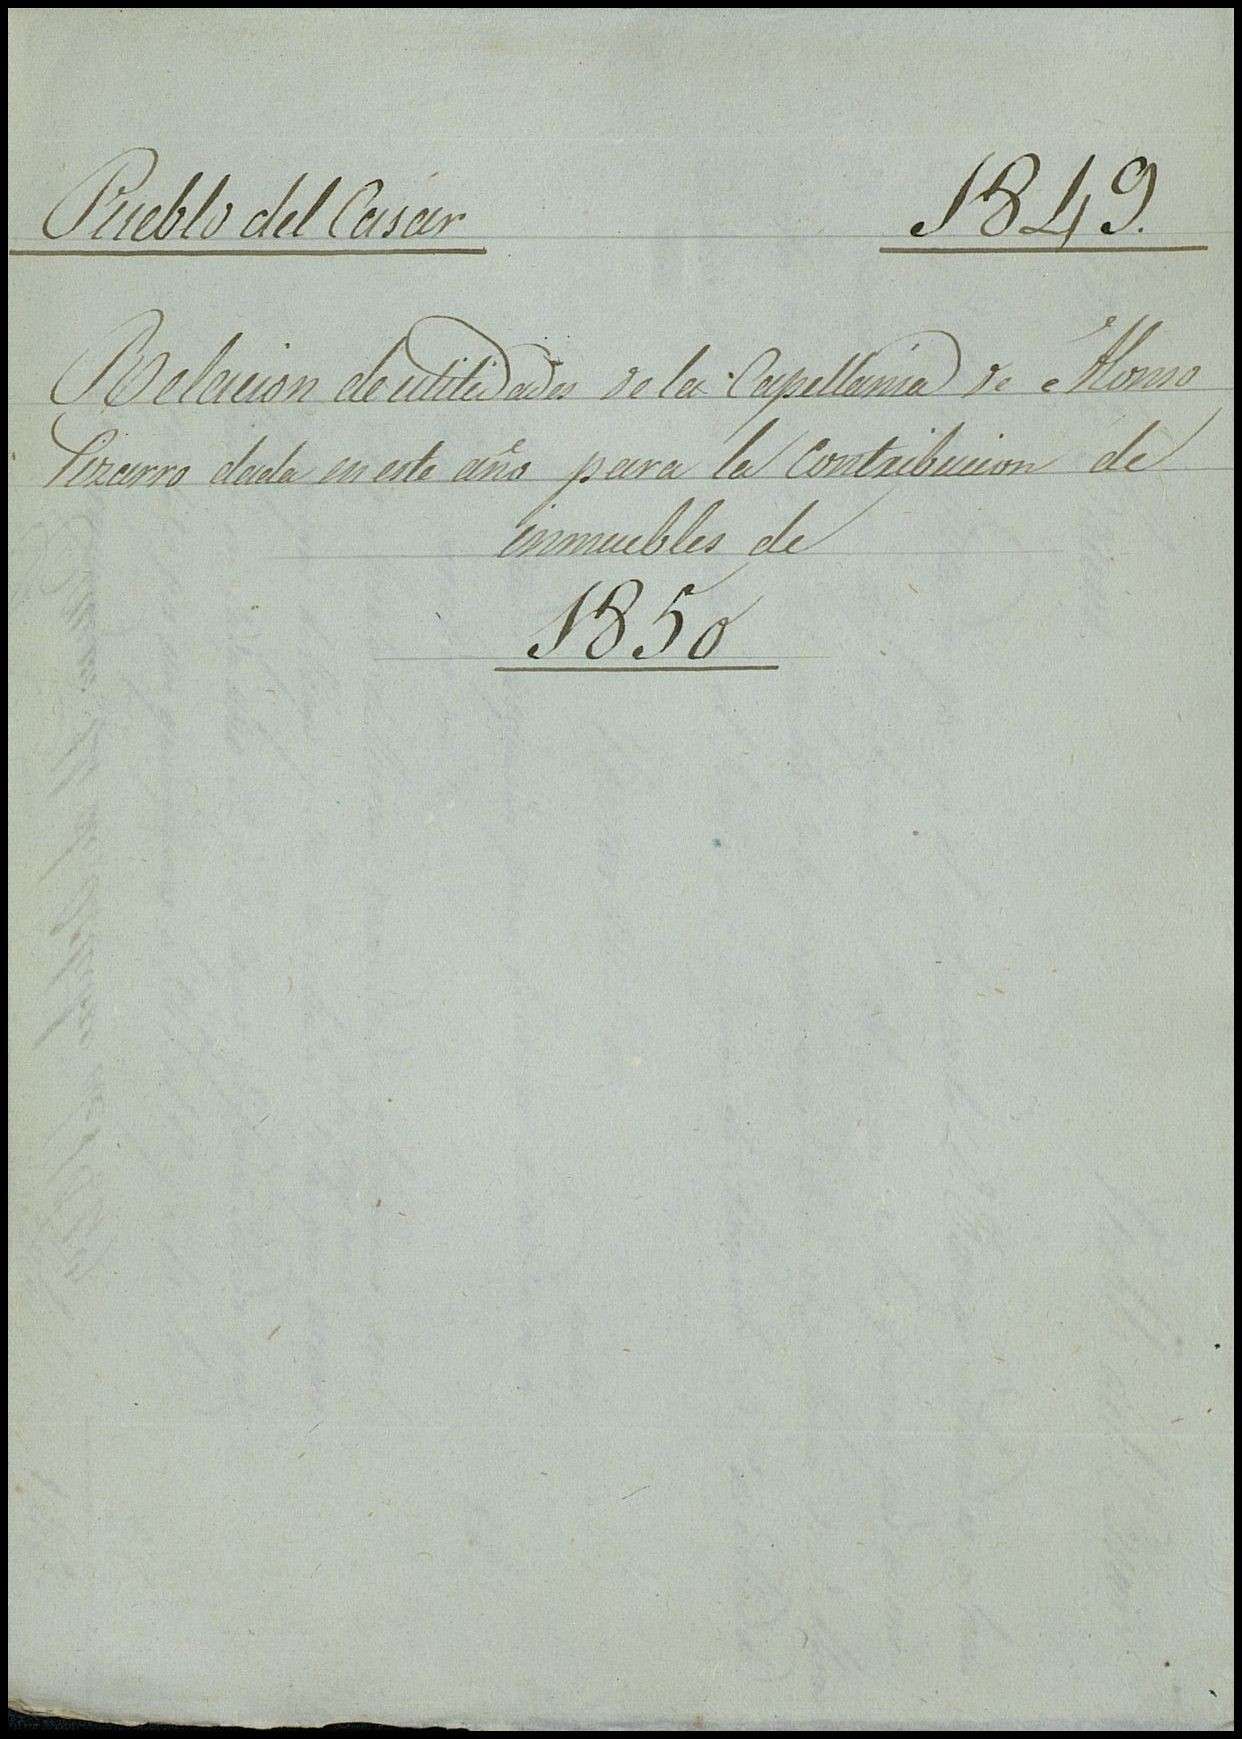 Pueblo del Casar
1849.
Relacion de utilidades de la Capellania de Alonso
Pizarro dada en este año para la Contribucion de
inmuebles de
1850